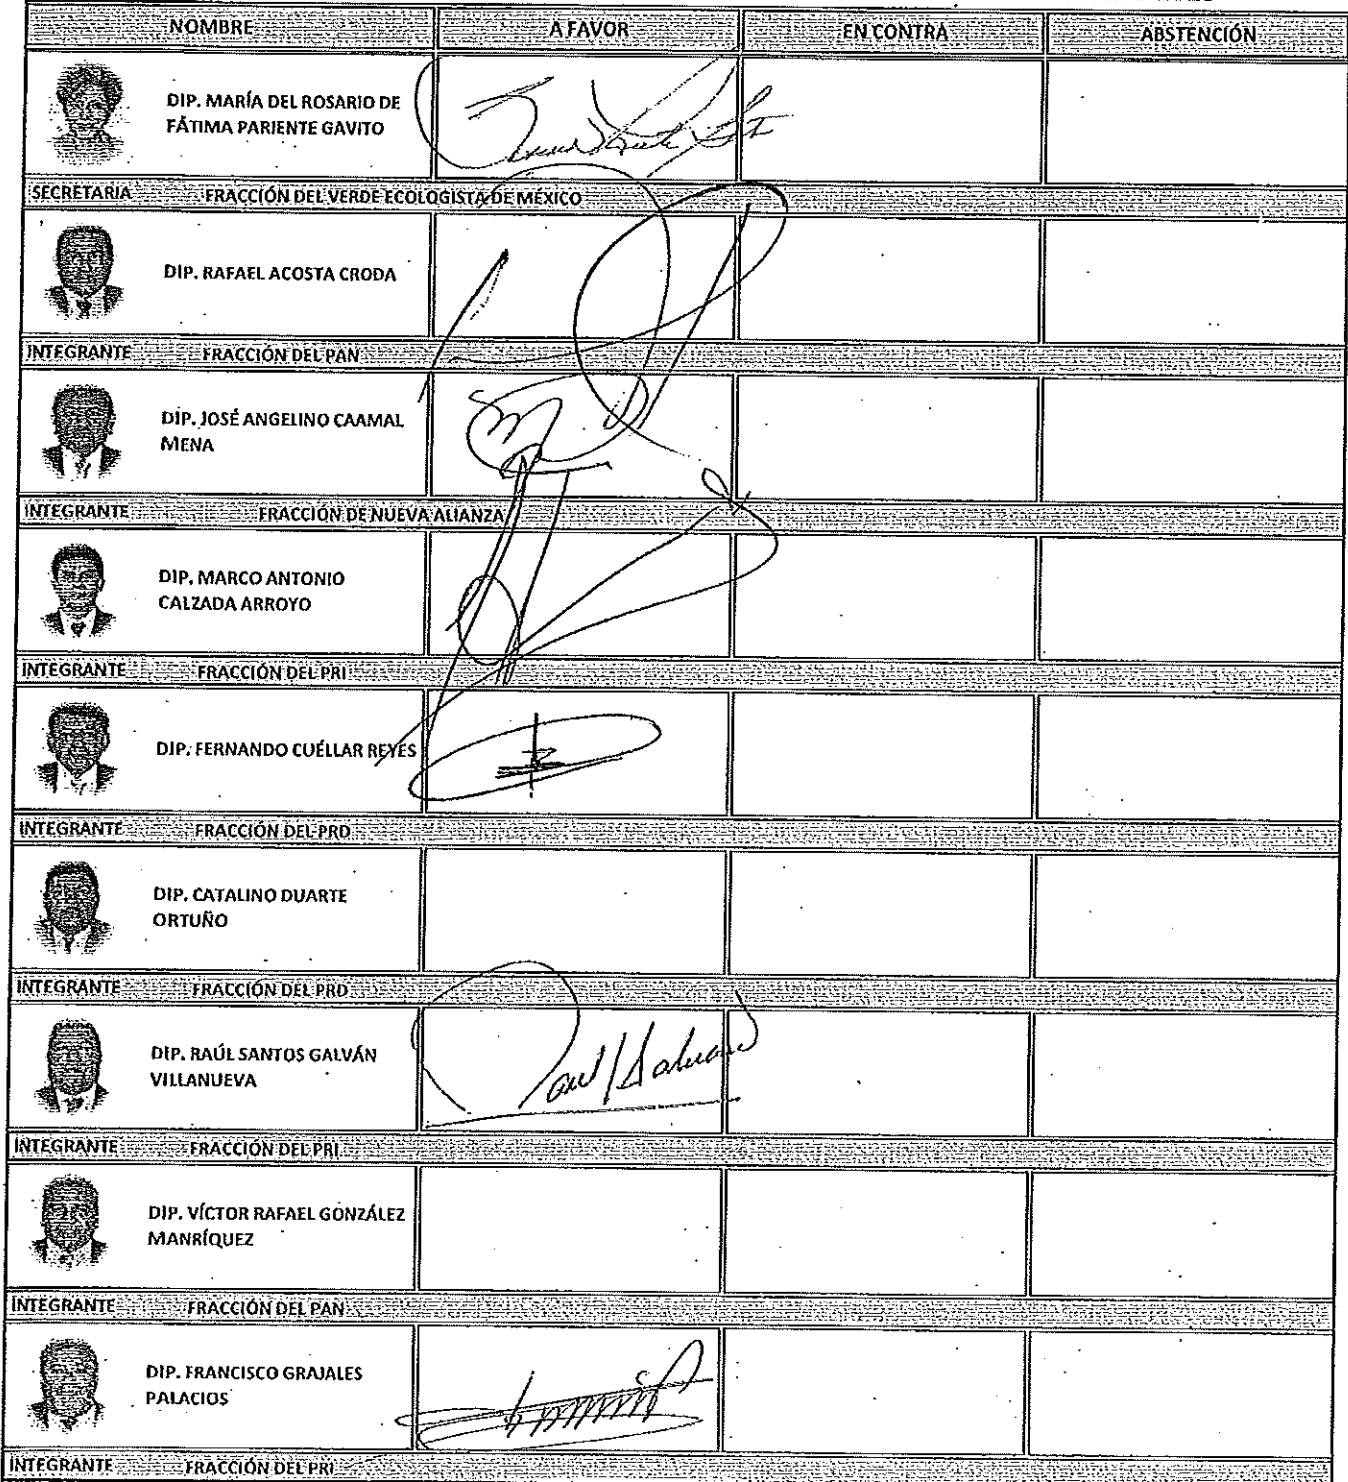 NOMBRE A FAVOR EN CONTRA ABSTENCIÓN
DIP. MARÍA DEL ROSARIO DE
FÁTIMA PARIENTE GAVITO
SECRETARIA FRACCIÓN DEL VERDE ECOLOGISTA DE MÉXICO
DIP. RAFAEL ACOSTA CRODA
INTEGRANTE FRACCIÓN DEL PAN
DIP. JOSÉ ANGELINO CAAMAL
MENA
INTEGRANTE FRACCIÓN DE NUEVA ALIANZA
DIP. MARCO ANTONIO
CALZADA ARROYO
INTEGRANTE FRACCIÓN DEL PRI
DIP. FERNANDO CUÉLLAR REYES
INTEGRANTE FRACCIÓN DEL PRD
DIP. CATALINO DUARTE
ORTUÑO
INTEGRANTE FRACCIÓN DEL PRD
DIP. RAÚL SANTOS GALVÁN
VILLANUEVA
INTEGRANTE FRACCIÓN DEL PRI
DIP. VÍCTOR RAFAEL GONZÁLEZ
MANRÍQUEZ
INTEGRANTE FRACCIÓN DEL PAN
DIP. FRANCISCO GRAJALES
PALACIOS
INTEGRANTE FRACCIÓN DEL PRI